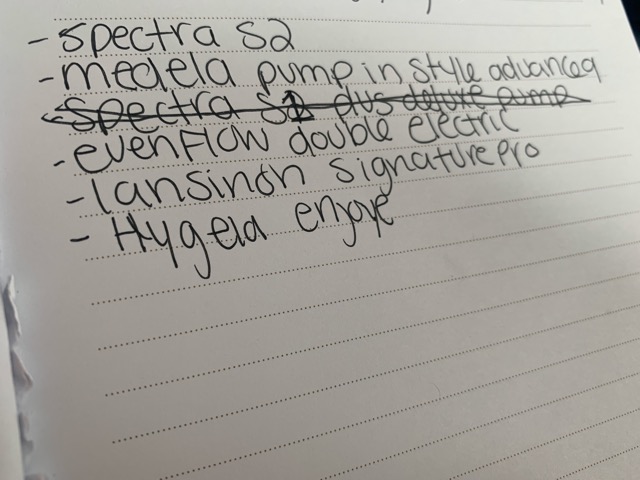 - Spectra S2
- medela pump in style advanced
- Spectra S1 plus deluxe pump
- evenflow double electric
- lansinoh signature pro
- Hygeia enjoye